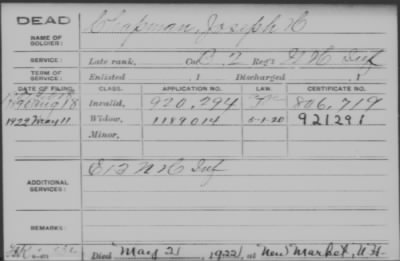 DEAD
NAME OF SOLDIER:
Chapman, Joseph H
SERVICE:
Late rank, Co. C. 2 Reg't N H Inf
TERM OF SERVICE:
Enlisted , 1 Discharged , 1
DATE OF FILING. CLASS. APPLICATION NO. LAW. CERTIFICATE NO.
Aug 18 Invalid, 920,294 806,719
1922 May 11 Widow, 1189014 5-1-20 921291
Minor,
ADDITIONAL SERVICES:
E 13 N H Inf
REMARKS:
Died May 2 , 1922, at New Market, N.H.